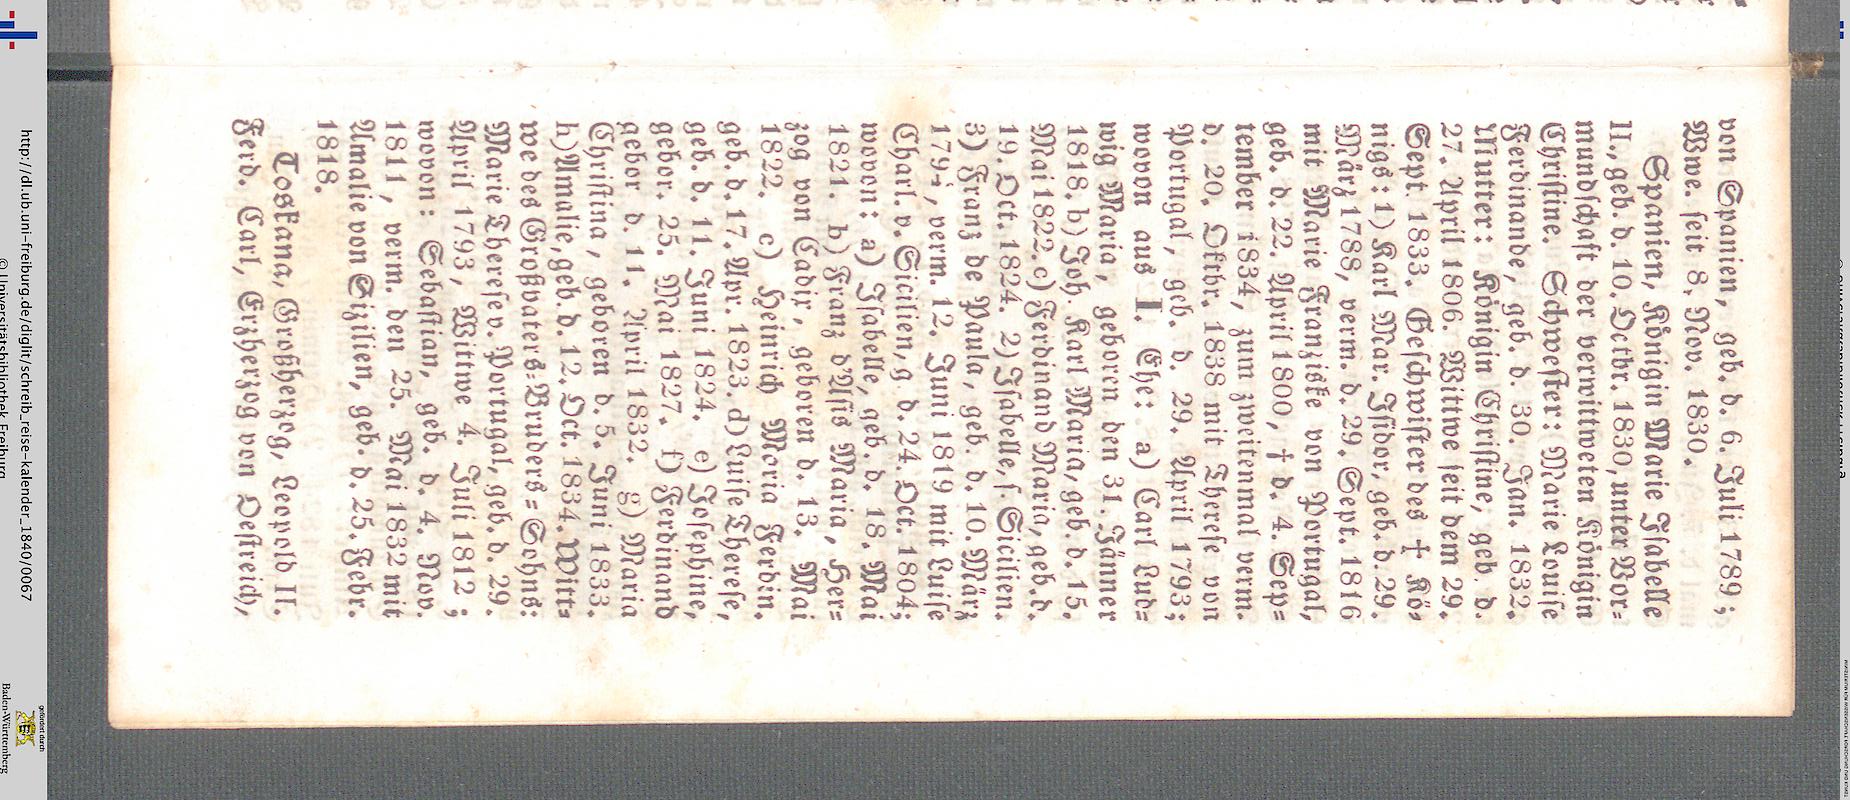 von Spanien, geb. d. 6. Juli 1789;
Wwe. seit 8. Nov. 1830.
Spanien, Königin Marie Isabelle
II., geb. d. 10. Octbr. 1830, unter Vor=
mundschaft der verwittweten Königin
Christine. Schwester: Marie Louise
Ferdinande, geb. d. 30. Jan. 1832.
Mutter: Königin Christine, geb. d.
27. April 1806. Wittwe seit dem 29.
Sept. 1833. Geschwister des † Kö=
nigs: 1) Karl Mar. Isidor, geb. d. 29.
März 1788, verm. d. 29. Sept. 1816
mit Marie Franziske von Portugal,
geb. d. 22. April 1800, † d. 4. Sep=
tember 1834, zum zweitenmal verm.
d. 20. Oktbr. 1838 mit Therese von
Portugal, geb. d. 29. April 1793;
wovon aus I. Ehe: a) Carl Lud=
wig Maria, geboren den 31. Jänner
1818. b) Joh. Karl Maria, geb. d. 15.
Mai 1822. c) Ferdinand Maria, geb. d.
19. Oct. 1824. 2) Isabelle, s. Sicilien.
3) Franz de Paula, geb. d. 10. März
verm. 12. Juni 1819 mit Luise
Charl. v. Sicilien, g. d. 24. Oct. 1804;
wovon: a) Isabelle, geb. d. 18. Mai
1821. b) Franz d'Assis Maria, Her=
zog von Cadix, geboren d. 13. Mai
1822. c) Heinrich Maria Ferdin.
geb. d. 17. Apr. 1823. d) Luise Therese,
geb. d. 11. Juni 1824. e) Josephine,
gebor. 25. Mai 1827. f) Ferdinand
gebor d. 11. April 1832. g) Maria
Christina, geboren d. 5. Juni 1833.
h) Amalie, geb. d. 12. Oct. 1834. Witt=
we des Großvaters=Bruders=Sohns:
Marie Therese v. Portugal, geb. d. 29.
April 1793, Wittwe 4. Juli 1812;
wovon: Sebastian, geb. d. 4. Nov.
1811, verm. den 25. Mai 1832 mit
Amalie von Sizilien, geb. d. 25. Febr.
1818.
Toskana, Großherzog, Leopold II.
Ferd. Carl, Erzherzog von Oestreich,
http://dl.ub.uni-freiburg.de/diglit/schreib_reise-kalender_1840/0067
© Universitätsbibliothek Freiburg
gefördert durch
Baden-Württemberg